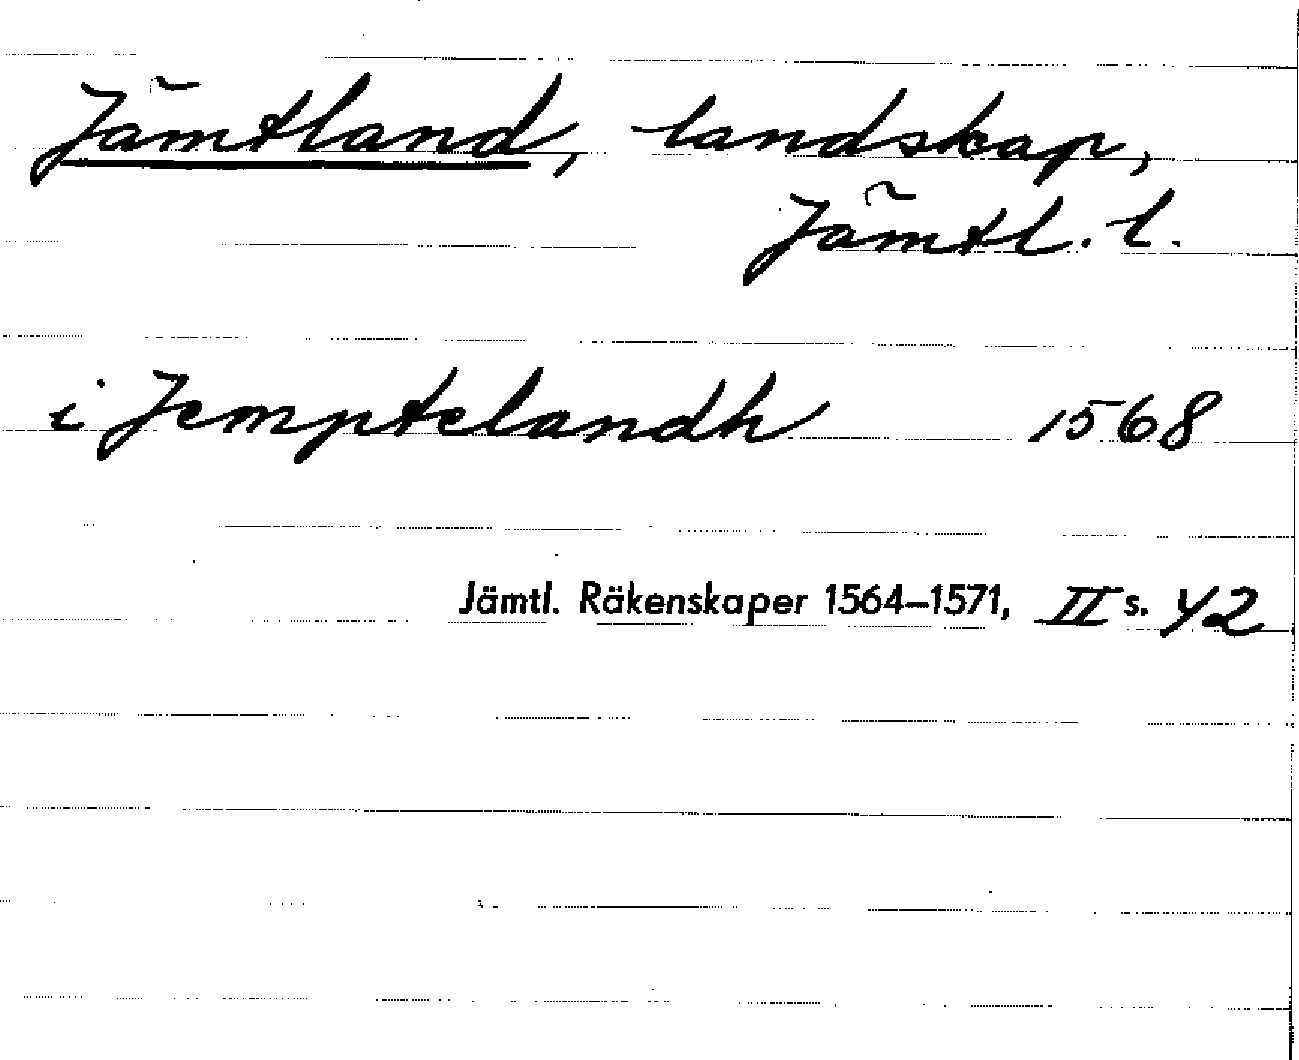 Jämtland, landskap,
Jämtl. l.
i Jemptelandh 1568
Jämtl. Räkenskaper 1564–1571, II s. 42